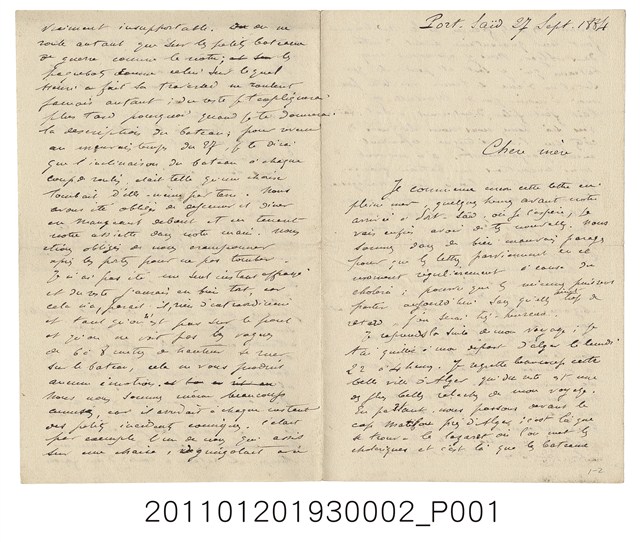 Port-Saïd 27 Sept. 1884
Chère mère
Je commence mon cette lettre en
pleine mer, quelques heures avant notre
arrivée à Port-Saïd où j'espère, je
vais enfin avoir de tes nouvelles. Nous
sommes dans de bien mauvais parages
pour que les lettres parviennent en ce
moment régulièrement à cause du
choléra; pourvu que les miennes puissent
partir aujourd'hui sans qu'elles aient trop de
retard, j'en serai très heureux.
Je reprends la suite de mon voyage. Je
t'ai quittée à mon départ d'Alger le lundi
22 à 4 heures. Je regrette beaucoup cette
belle ville d'Alger, qui du reste est une
des plus belles relâches de mon voyage.
En partant nous passons devant le
cap Matifou près d'Alger; c'est là que
se trouve le lazaret où l'on met les
cholériques et c'est là que les bateaux
1-2
vraiment insupportable. On
roule autant que sur les petits bateaux
de guerre comme le notre; et sur les
paquebots comme celui sur lequel
Henri a fait sa traversée ne roulent
jamais autant; du reste je t'expliquerai
plus tard pourquoi quand je te donnerai
la description du bateau; pour revenir
au mauvais temps du 27, je te dirai
que l'inclinaison du bateau à chaque
coup de roulis était telle qu'une chaise
tombait d'elle-même par terre. Nous
avons été obligés de déjeuner et dîner
en mangeant debout et en tenant
notre assiette dans notre main. Nous
étions obligés de nous cramponner
après les portes pour ne pas tomber.
Je n'ai pas été un seul instant
et du reste j'aurais eu bien tort, car
cela n'a, paraît-il, rien d'extraordinaire
et tant qu'on n'est pas sur le pont
et qu'on ne voit pas les vagues
de 6 à 8 mètres de hauteur se ruer
sur le bateau, cela ne vous produit
aucune émotion.
Nous nous sommes même beaucoup
amusés, car il arrivait à chaque instant
des petits incidents comiques. C'était
par exemple l'un de nous qui assis
sur une chaise, dégringolait
201101201930002_P001